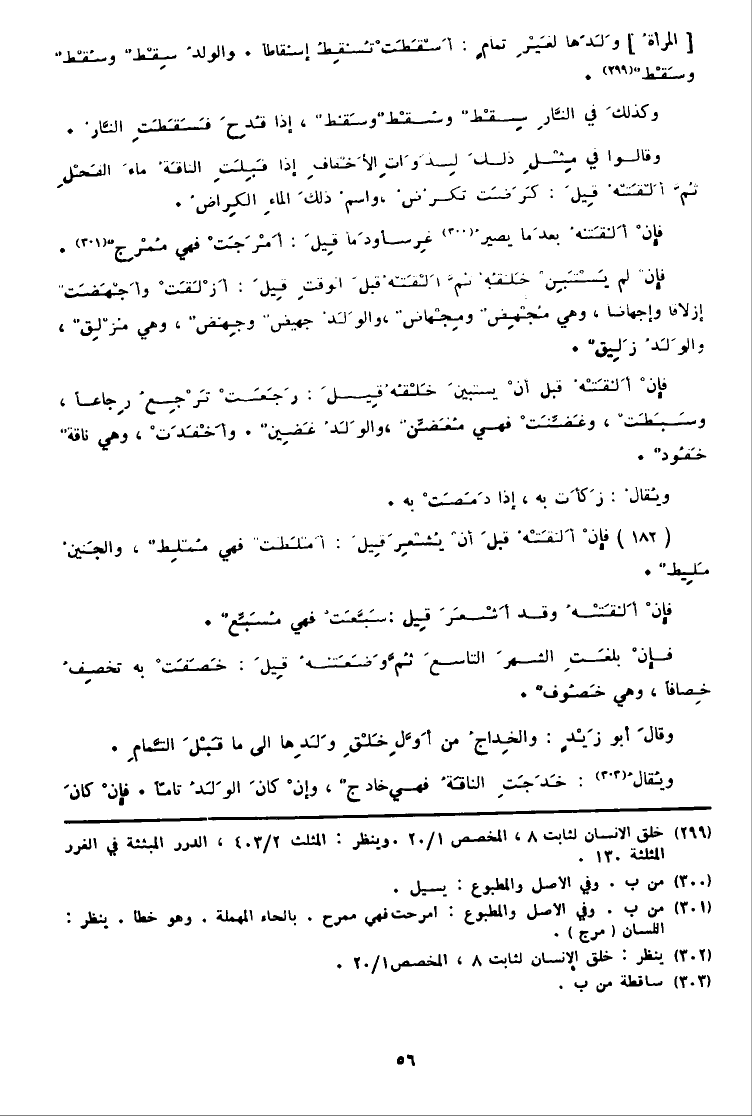 [ المرأةُ ] وَلَدَها لغَيْرِ تمامٍ : أَسْقَطَتْ تُسْقِطُ إسقاطاً . والولدُ سِقْطٌ وسُقْطٌ
وسَقْطٌ(٢٩٩) .
وكذلكَ في النَّارِ سِقْطٌ وسُقْطٌ وسَقْطٌ ، إذا قُدِحَ فَسَقَطَتِ النَّارُ .
وقالوا في مِثْلِ ذلكَ لِذَوَاتِ الأَخْفافِ إذا قَبِلَتِ الناقةُ ماءَ الفَحْلِ
ثُمَّ أَلْقَتْهُ قيلَ : كَرَضَتْ تكرُضُ ، واسمُ ذلكَ الماءِ الكِراضُ .
فإنْ أَلْقَتْهُ بعدَما يصيرُ(٣٠٠) غِرساً ودَماً قيلَ : أَمْرَجَتْ فهي مُمْرِجٌ(٣٠١) .
فإنْ لم يَسْتَبِنْ خَلْقُهُ ثمَّ أَلْقَتْهُ قبلَ الوقتِ قيلَ : أَزْلَقَتْ وأَجْهَضَتْ
إزلاقاً وإجهاضاً ، وهي مُجْهِضٌ ومِجْهاضٌ ، والوَلَدُ جهيضٌ وجِهْضٌ ، وهي مُزْلِقٌ ،
والوَلَدُ زَلِيقٌ .
فإنْ أَلْقَتْهُ قبل أنْ يستبينَ خَلْقُهُ قيلَ : رَجَعَتْ تَرْجِعُ رِجاعاً ،
وسَبَطَتْ ، وغَضَّنَتْ فهي مُغَضِّنٌ ، والوَلَدُ غَضِينٌ . وأَخْفَدَتْ ، وهي ناقةٌ
خَفُودٌ .
ويُقالُ : زَكَأَت به ، إذا دَمَصَتْ به .
( ١٨٢ ) فإنْ أَلْقَتْهُ قبلَ أنْ يُشْعِرَ قيلَ : أَمْلَطَتْ فهي مُمْلِطٌ ، والجَنينُ
مَلِيطٌ .
فإنْ أَلْقَتْهُ وقد أَشْعَرَ قيل : سَبَّغَتْ فهي مُسَبِّغٌ .
فإنْ بلغَتِ الشهرَ التاسعَ ثُمَّ وَضَعَتْهُ قيلَ : خَصَفَتْ به تخصِفُ
خِصافاً ، وهي خَصُوفٌ .
وقالَ أبو زَيْدٍ : والخِداجُ من أَوَّلِ خَلْقِ وَلَدِها الى ما قَبْلَ التَّمامِ .
ويُقالُ(٣٠٣) : خَدَجَتِ الناقةُ فهي خادِجٌ ، وإنْ كانَ الوَلَدُ تامّاً . فإنْ كانَ
(٢٩٩) خلق الانسان لثابت ٨ ، المخصص ٢٠/١ . وينظر : المثلث ٤٠٣/٢ ، الدرر المبثثة في الغرر
المثلثة ١٣٠ .
(٣٠٠) من ب . وفي الاصل والمطبوع : يسيل .
(٣٠١) من ب . وفي الاصل والمطبوع : امرحت فهي ممرح . بالحاء المهملة . وهو خطأ . ينظر :
اللسان ( مرج ) .
(٣٠٢) ينظر : خلق الإنسان لثابت ٨ ، المخصص ٢٠/١ .
(٣٠٣) ساقطة من ب .
٥٦